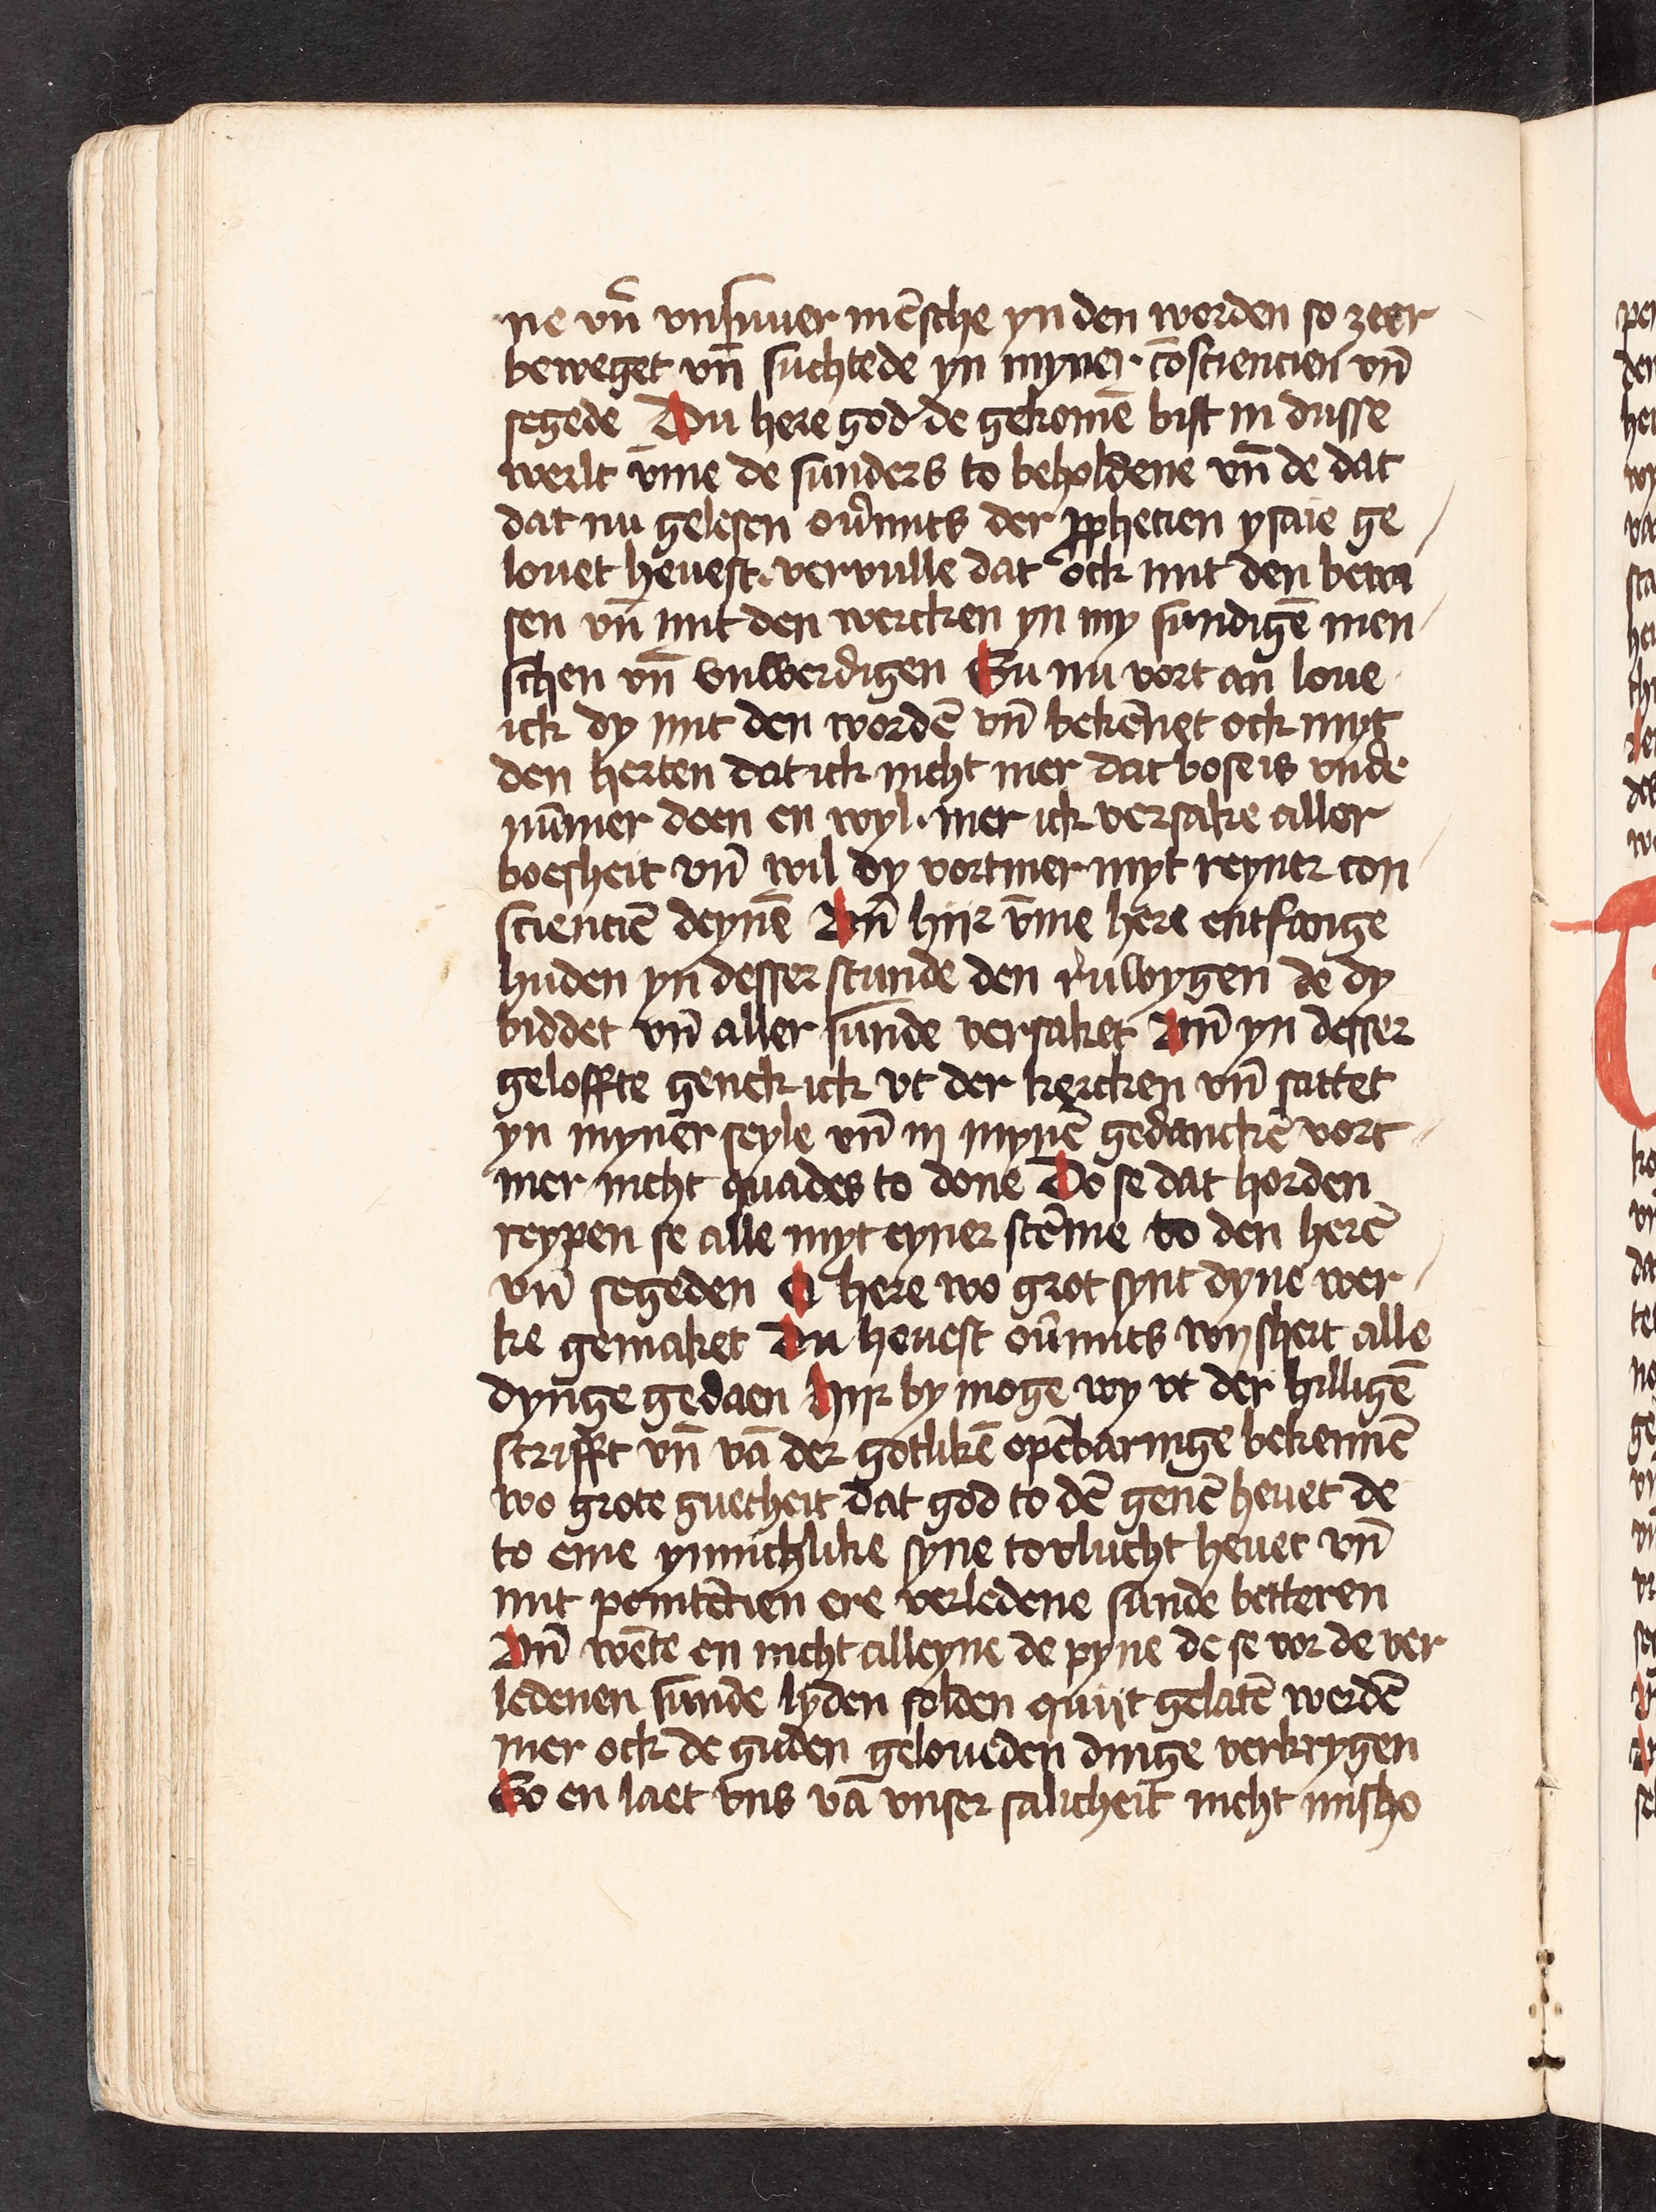 ne vn̄ vnsuuer mēsche yn den worden so zeer
beweget vn̄ suchtede yn myner cōsciencien vn̄
segede Du here god de gekomē bist in dusse
werlt v̄me de sunders to beholdene vn̄ de dat
dat nu gelesen ouͤmits der ꝓphecien ysaie ge
louet heuest· vervulle dat ock mit den bewi
sen vn̄ mit den wercken yn my sundigē men
schen vn̄ vnwerdigen Su nu vort an loue
ick dy mit den wordē vn̄ bekēnet ock myt
den herten dat ick nicht mer dat bose is vnde
nūmer doen en wyl· mer ick versake aller
boesheit vn̄ wil dy vortmer myt reyner con
scienciē deynē Vn̄ hiir v̄me here entfange
huden yn desser stunde den ruwygen de dy
biddet vn̄ aller sunde versaket Vn̄ yn desser
geloffte genck ick vt der kercken vn̄ sattet
yn myner seyle vn̄ in mynē gedanckē vort
mer nicht quades to done Do se dat horden
reypen se alle myt eyner stēme to den herē
vn̄ segeden O here wo grot synt dyne wer
ke gemaket Du heuest ouͤmits wijsheit alle
dynge gedaen Hiir by moge wy vt der hilligē
scrifft vn̄ vā der gotlikē opēbaringe bekennē
wo grote guetheit dat god to dē genē heuet de
to eme ynnichlike syne tovlucht heuet vn̄
mit penitēcien ere verledene sunde betteren
Vn̄ wēte en nicht alleyne de pyne de se vor de ver
ledenen sunde lyden solden quijt gelatē werdē
mer ock de guden geloueden dinge verkrygen
So en laet vns vā vnser salicheit nicht misho